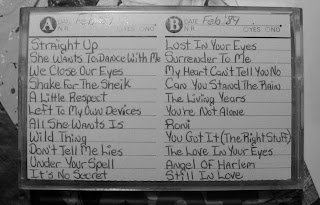 A DATE Feb '89 B DATE Feb '89
N.R. YES NO N.R. YES NO
Straight Up
She Wants To Dance With Me
We Close Our Eyes
Shake For The Sheik
A Little Respect
Left To My Own Devices
All She Wants Is
Wild Thing
Don't Tell Me Lies
Under Your Spell
It's No Secret
Lost In Your Eyes
Surrender To Me
My Heart Can't Tell You No
Can You Stand The Rain
The Living Years
You're Not Alone
Roni
You Got It (The Right Stuff)
The Love In Your Eyes
Angel Of Harlem
Still In Love